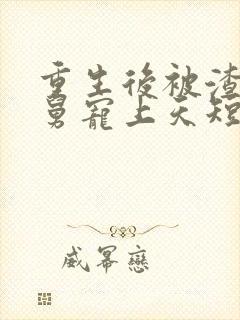 重生後被渣
舅寵上天短
威冪戀